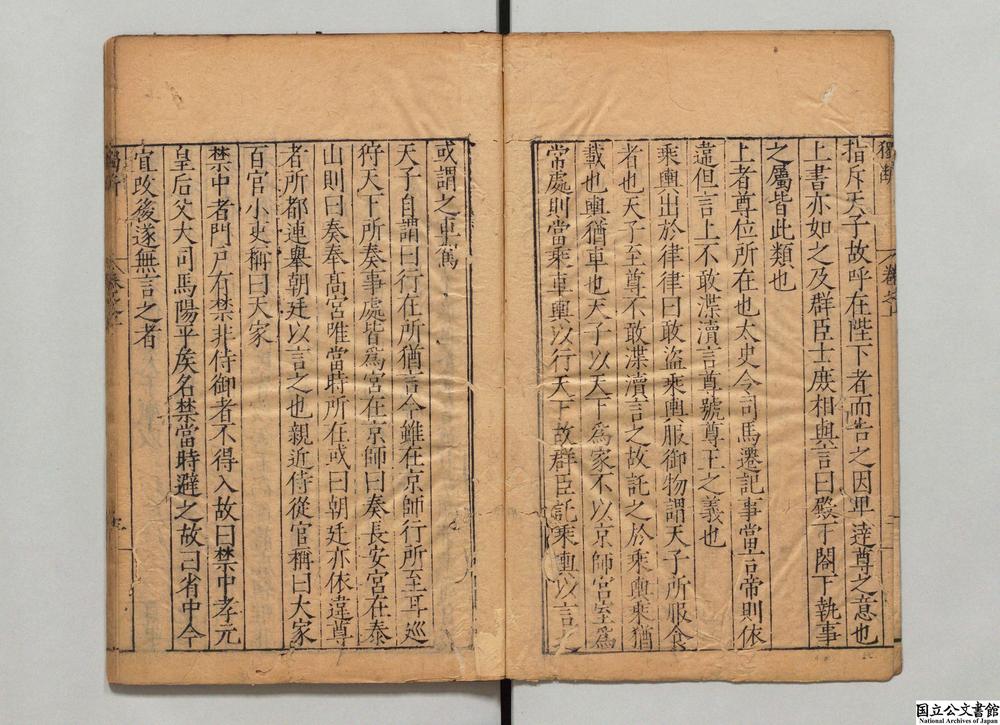 指斥天子故呼在陛下者而告之因卑達尊之意也
上書亦如之及群臣士庶相與言曰殿下閣下執事
之屬皆此類也
上者尊位所在也太史令司馬遷記事當言帝則依
違但言上不敢渫瀆言尊號尊王之義也
乘輿出於律律曰敢盜乘輿服御物謂天子所服食
者也天子至尊不敢渫瀆言之故託之於乘輿乘猶
載也輿猶車也天子以天下為家不以京師宮室為
常處則當乘車輿以行天下故群臣託乘輿以言之
或謂之車駕
天子自謂曰行在所猶言今雖在京師行所至耳巡
狩天下所奏事處皆為宮在京師曰奏長安宮在泰
山則曰奏奉高宮唯當時所在或曰朝廷亦依違尊
者所都連舉朝廷以言之也親近侍從官稱曰大家
百官小吏稱曰天家
禁中者門戶有禁非侍御者不得入故曰禁中孝元
皇后父大司馬陽平侯名禁當時避之故曰省中今
宜改後遂無言之者
獨斷
卷之上
国立公文書館
National Archives of Japan